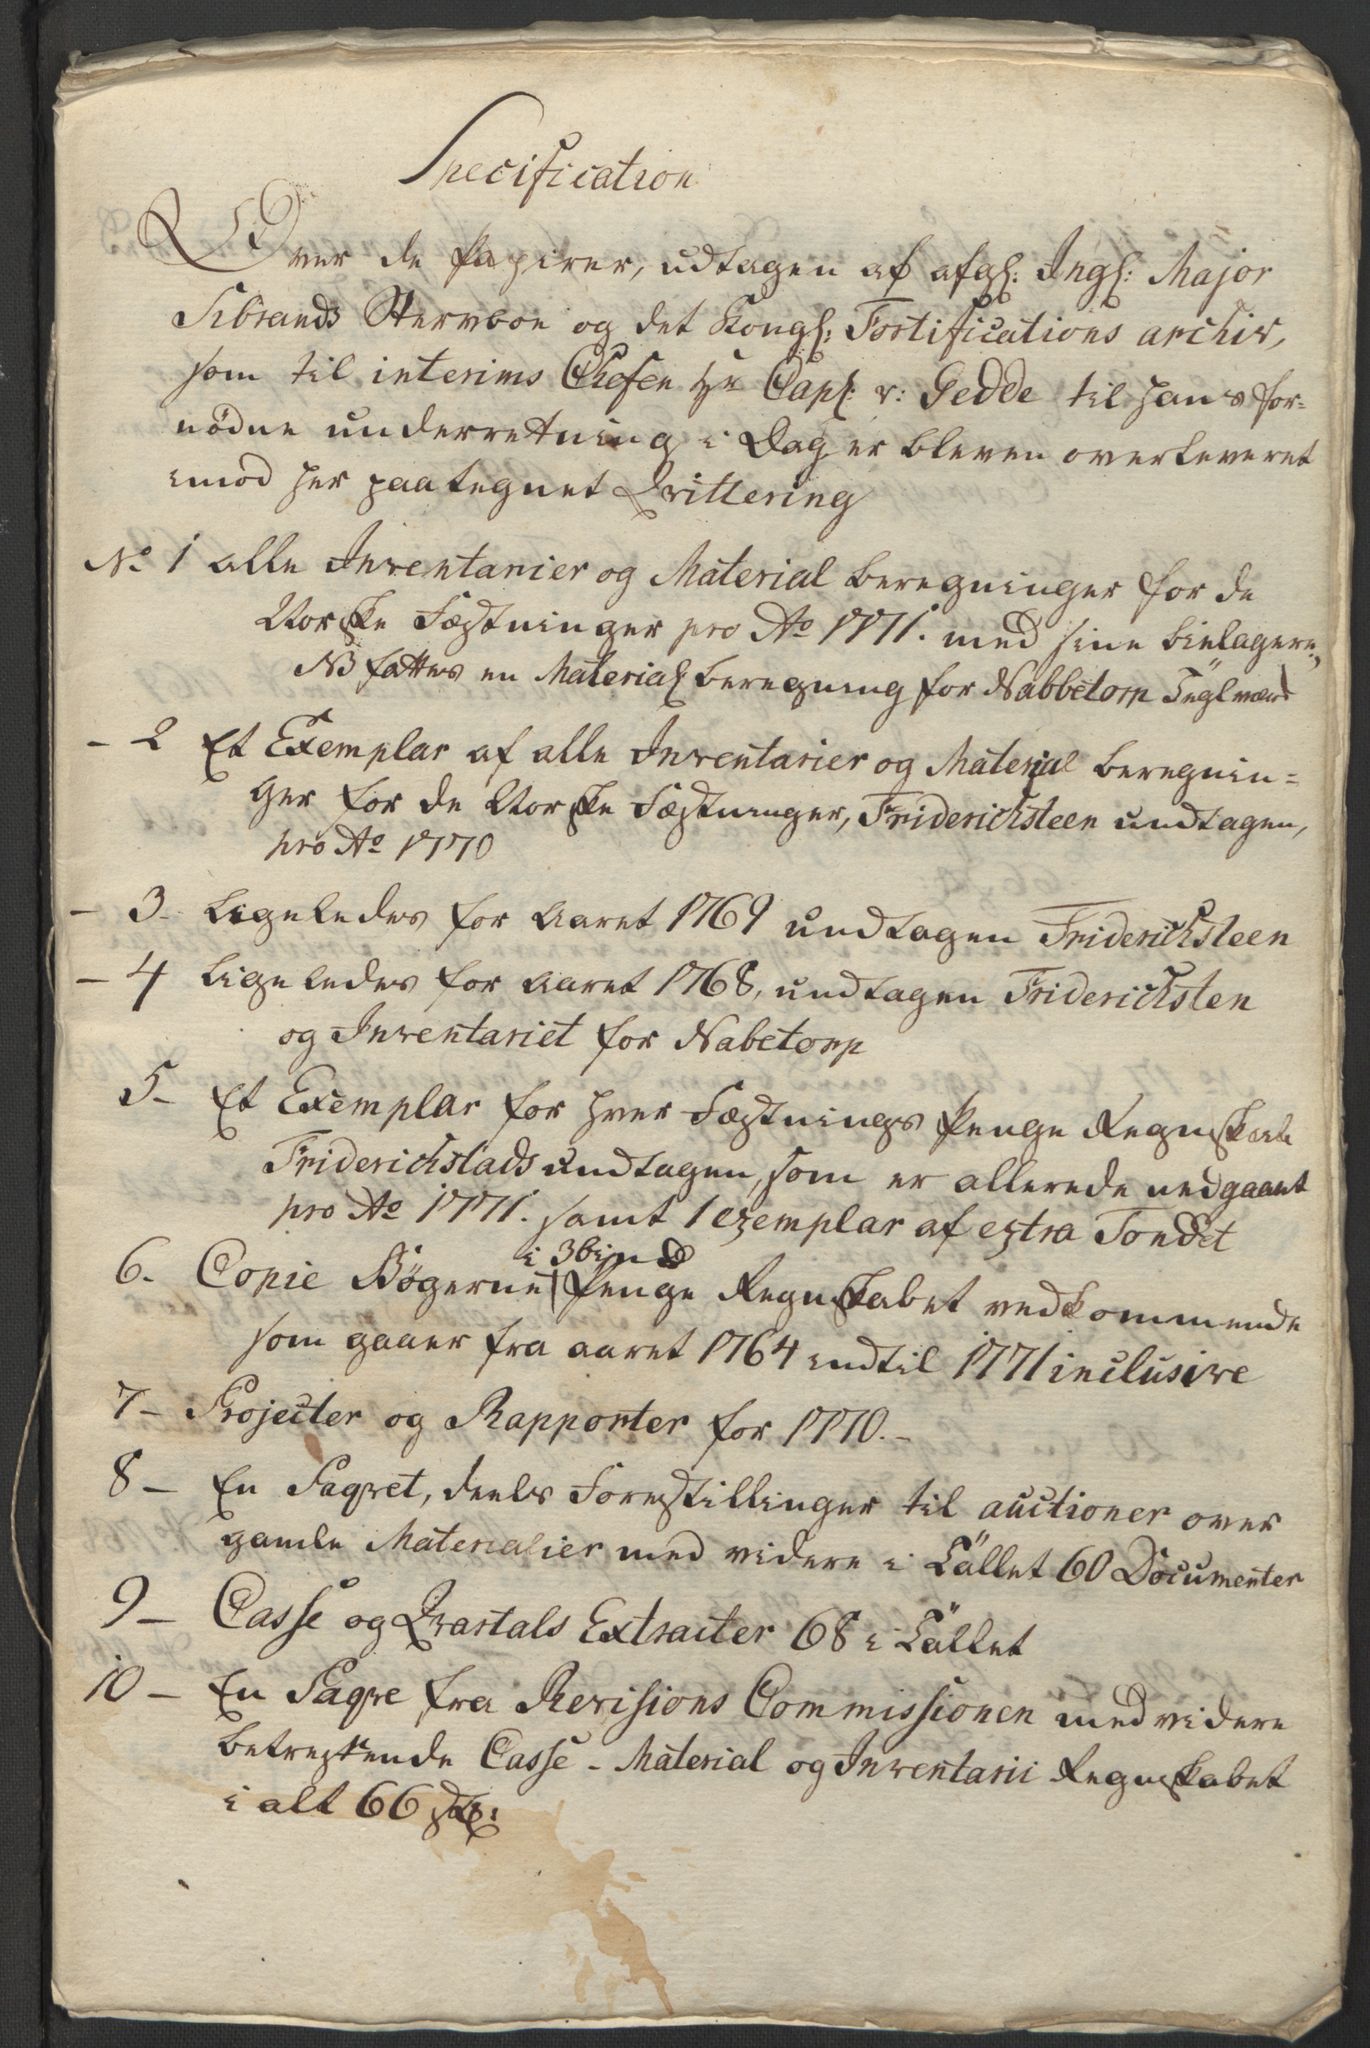 Specification
Over de Papirer, udtagen af afgl: Ingl: Major
Sibrands Stervboe og det Kongl: Fortifications archiv,
som til interims Chefen Hr Capt: v: Gedde til hans for=
nødne underretning i Dag er bleven overleveret
imod her paategnet Qvittering
No 1 alle Inventarier og Material beregninger for de
Norske Fæstninger pro Ao 1771. med sine bielagere,
NB fattes en Material beregning for Nabbetorp Teglværk
- 2 Et Exemplar af alle Inventarier og Material beregnin=
ger for de Norske Fæstninger, Friderichsteen undtagen,
pro Ao 1770
- 3- Ligeledes for Aaret 1769 undtagen Friderichsteen
- 4 Ligeledes for Aaret 1768, undtagen Friderichsten
og Inventariet for Nabetorp
5- Et Exemplar for hver Fæstnings Penge Regnskab
Friderichstads undtagen, som er allerede nedgaaet
pro Ao 1771. samt 1 exemplar af extra Fondet
i 3 bind
6- Copie Bøgerne Penge Regnskabet vedkommende
som gaaer fra aaret 1764 indtil 1771 inclusive
7- Projecter og Rapporter for 1770.-
8- En Paqvet, deels Forestillinger til auctioner over
gamle Materialier med videre i Tallet 60 Documenter
9- Casse og Qvartals Extracter 68 i Tallet
10- En Paqve fra Revisions Commissionen med videre
betreffende Casse - Material og Inventarii Regnskabet
i alt 66 st: